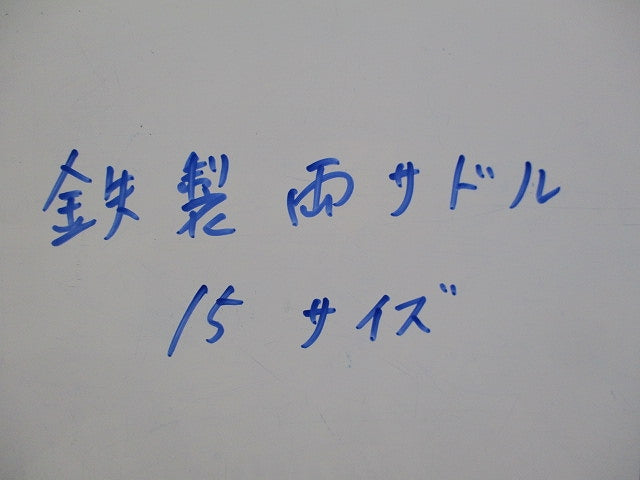 鉄製 両サドル
15 サイズ